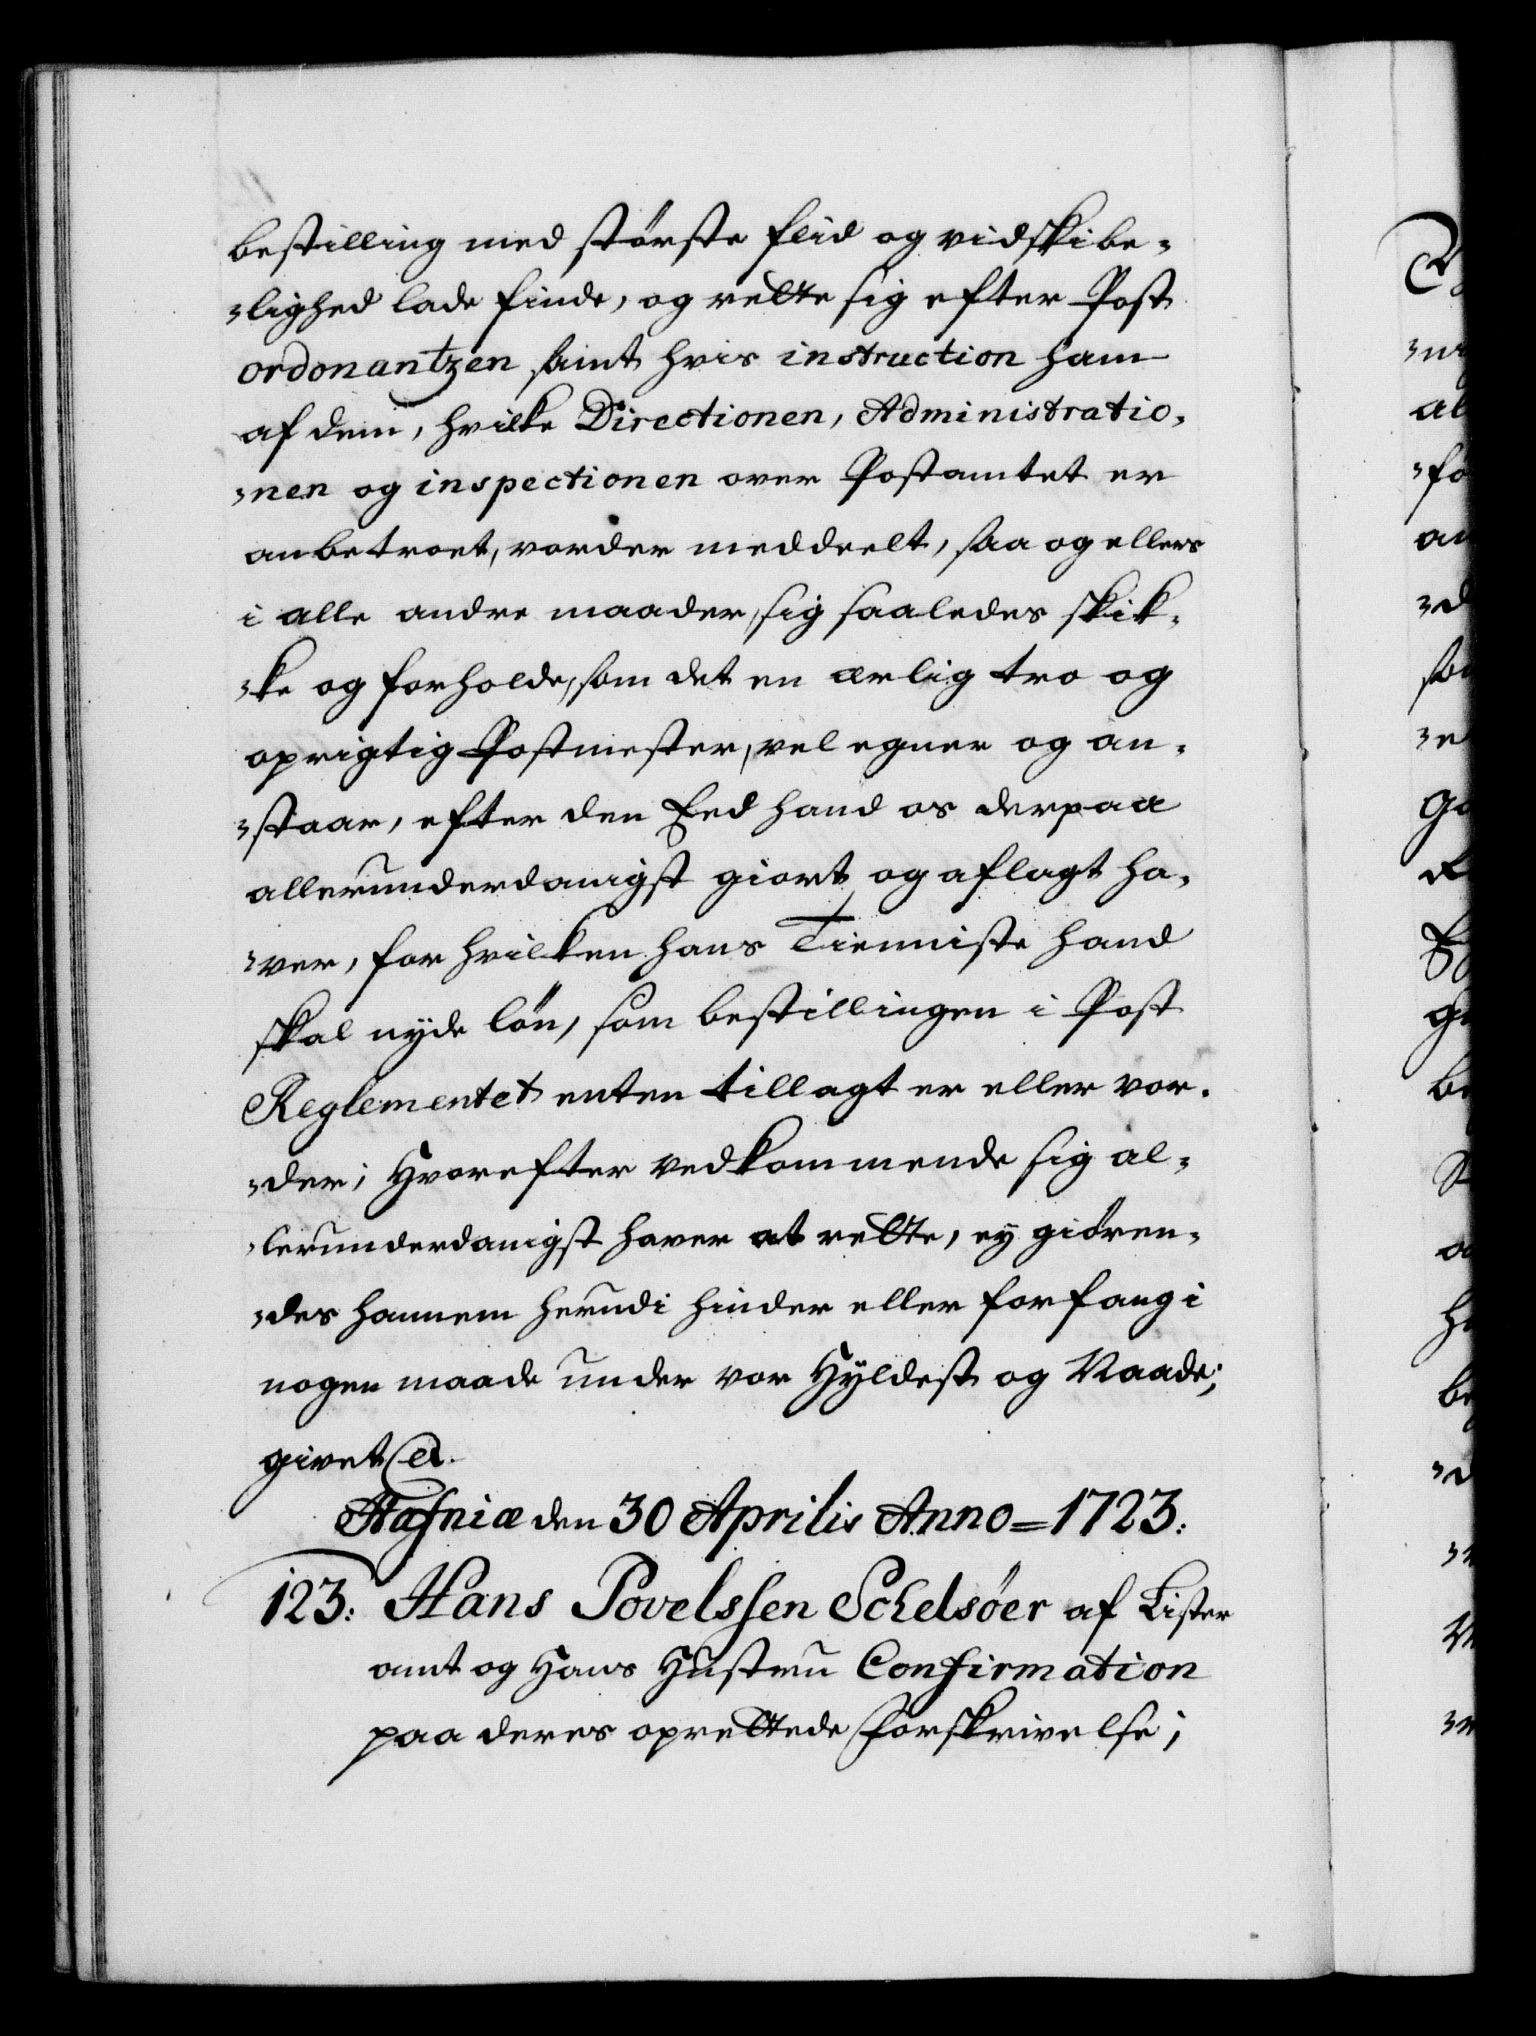 bestilling med störste flid og vidskibe„
„lighed lade finde, og rette sig efter Post
ordonantzen samt hvis instruction ham
af dem, hvilke Directionen, Administratio„
„nen og inspectionen over Postamtet er
anbetroet, vorder meddeelt, saa og ellers
i alle andre maader, sig saaledes skik„
„ke og forholde, som det en ærlig tro og
oprigtig Postmester, vel egner og an„
„staar, efter den Eed hand os derpaa
allerunderdanigst giort og aflagt ha„
„ver, for hvilken hans Tienniste hand
skal nyde lön, som bestillingen i Post
Reglementet enten tillagt er eller vor„
„der; Hvorefter vedkommende sig al„
„lerunderdanigst haver at rette, ey giören„
„des hannem herudi hinder eller forfang i
nogen maade under vor Hyldest og Naade;
givet &.
Hafniæ den 30 Aprilis Anno = 1723.
123: Hans Povelssen Schelsöer af Lister
amt og Hans Hustru Confirmation
paa deres oprettede Forskrivelse;